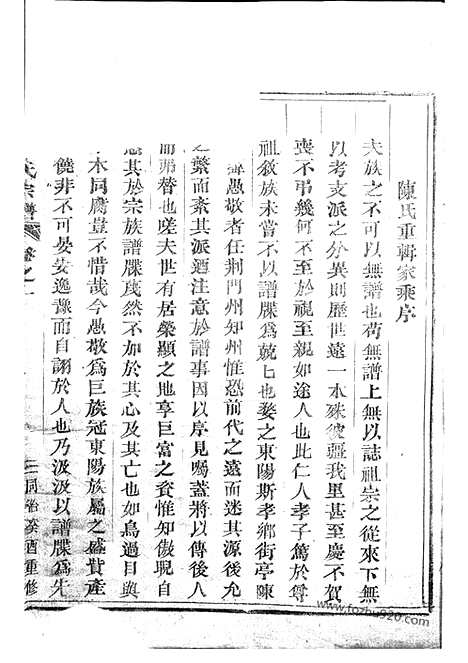 陳氏重輯家乘序
夫族之不可以無譜也苟無譜上無以誌祖宗之從來下無
以考支派之分異則歷世遠一本殊彼疆我里甚至慶不賀
喪不弔幾何不至於視至親如途人也此仁人孝子篤於尊
祖敘族未嘗不以譜牒為兢兢也婺之東陽斯孝鄉街亭陳
愚敬者任荆門州知州惟恐前代之遠而迷其源後允
之繁而紊其派迺注意於譜事因以序見囑蓋將以傳後人
而弗替也嗟夫世有居榮顯之地享巨富之資惟知傲睨自
其於宗族譜牒蔑然不加於其心及其亡也如鳥過目與
木同腐豈不惜哉今愚敬為巨族冠東陽族屬之盛貲產
饒非不可晏安逸豫而自詡於人也乃汲汲以譜牒為先
氏宗譜 卷之一 同治癸酉重修
www.fozhu920.com